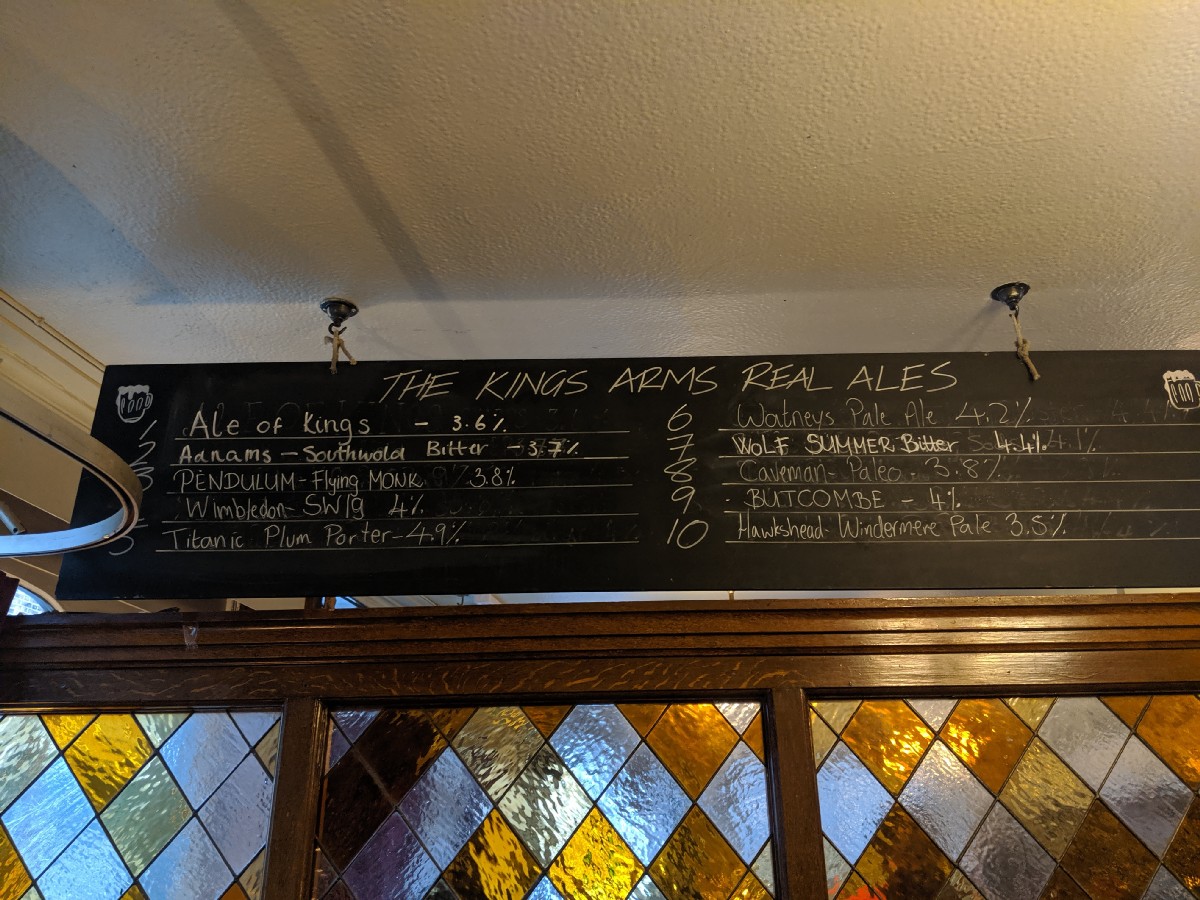 THE KINGS ARMS REAL ALES
Ale of Kings - 3.6%
2 Adnams - Southwold Bitter - 3.7%
3 PENDULUM - Flying MONK 3.8%
Wimbledon - SW19 4%
5 Titanic Plum Porter - 4.9%
6 Watneys Pale Ale 4.2%
7 WOLF SUMMER Bitter 4.4%
8 Caveman - Paleo - 3.8%
9 BUTCOMBE - 4%
10 Hawkshead - Windermere Pale 3.5%